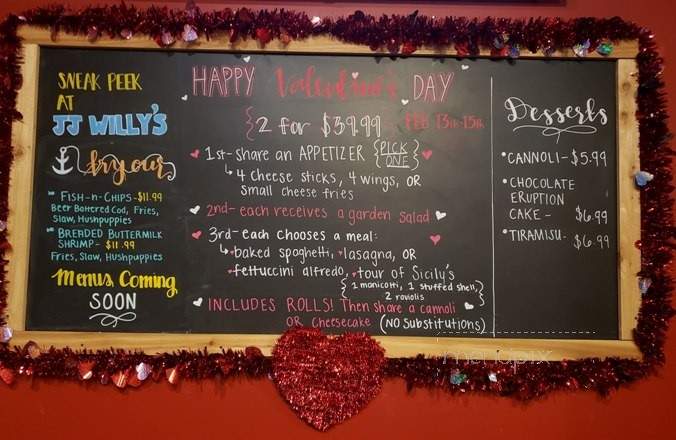 SNEAK PEEK
AT
JJ WILLY'S
fry our
FISH-n-CHIPS-$11.99
Beer Battered Cod, Fries,
Slaw, Hushpuppies
BREADED BUTTERMILK
SHRIMP- $11.99
Fries, Slaw, Hushpuppies
Menus Coming
SOON
HAPPY Valentine's DAY
2 for $39.99 FEB 13th-15th
1st-share an APPETIZER {PICK ONE}
4 cheese sticks, 4 wings, OR
small cheese fries
2nd-each receives a garden salad
3rd-each chooses a meal:
baked spaghetti, lasagna, OR
fettuccini alfredo, tour of Sicily's
{1 manicotti, 1 stuffed shell,
2 raviolis}
INCLUDES ROLLS! Then share a cannoli
OR cheesecake (NO Substitutions)
Desserts
• CANNOLI-$5.99
• CHOCOLATE
ERUPTION
CAKE- $6.99
• TIRAMISU- $6.99
menupix